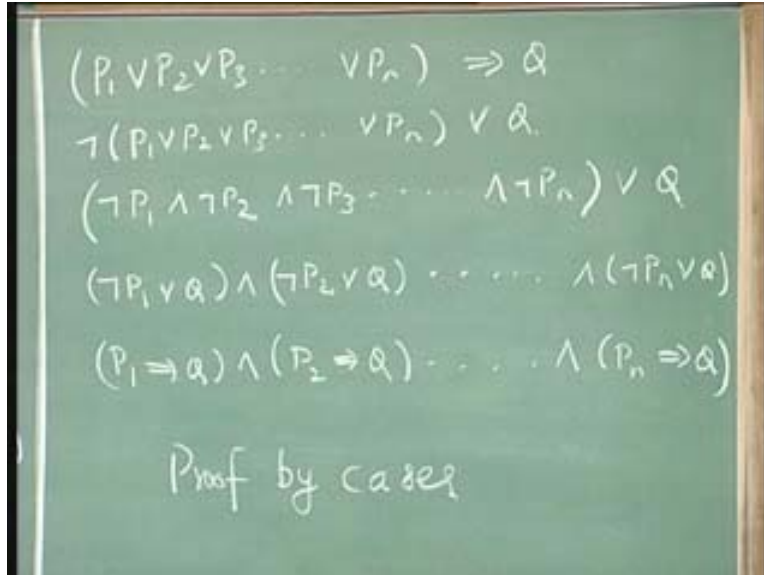 (P₁ ∨ P₂ ∨ P₃ .... ∨ Pₙ) ⇒ Q
¬(P₁ ∨ P₂ ∨ P₃ .... ∨ Pₙ) ∨ Q.
(¬P₁ ∧ ¬P₂ ∧ ¬P₃ ..... ∧ ¬Pₙ) ∨ Q
(¬P₁ ∨ Q) ∧ (¬P₂ ∨ Q) ...... ∧ (¬Pₙ ∨ Q)
(P₁ ⇒ Q) ∧ (P₂ ⇒ Q) ..... ∧ (Pₙ ⇒ Q)
Proof by cases